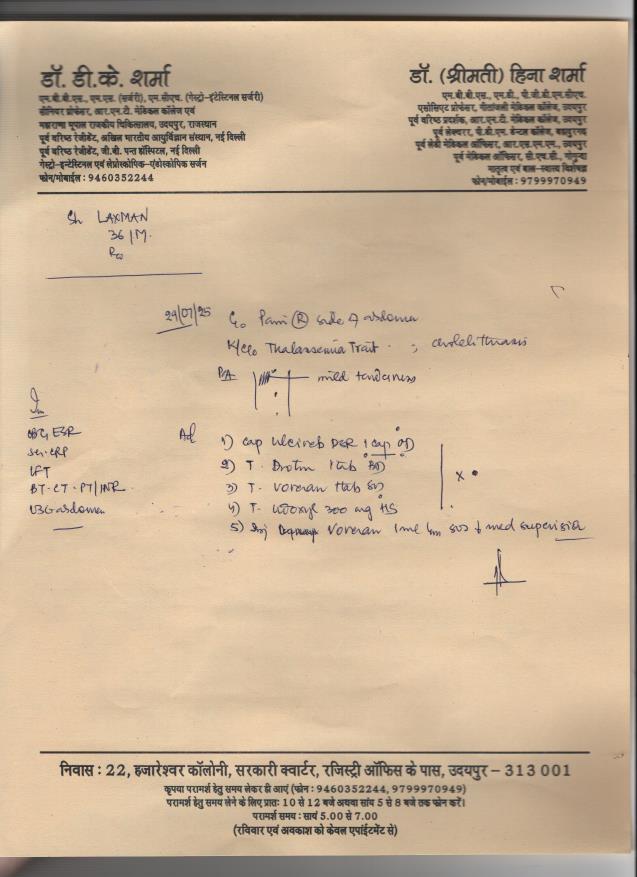 डॉ. डी.के. शर्मा
एम.बी.बी.एस., एम.एस. (सर्जरी), एम.सीएच. (गेस्ट्रो-इंटेस्टिनल सर्जरी)
सीनियर प्रोफेसर, आर.एन.टी. मेडिकल कॉलेज एवं
महाराणा भूपाल राजकीय चिकित्सालय, उदयपुर, राजस्थान
पूर्व वरिष्ठ रेजीडेंट, अखिल भारतीय आयुर्विज्ञान संस्थान, नई दिल्ली
पूर्व वरिष्ठ रेजीडेंट, जी.बी. पन्त हॉस्पिटल, नई दिल्ली
गेस्ट्रो-इन्टेस्टिनल एवं लेप्रोस्कोपिक-एंडोस्कोपिक सर्जन
फोन/मोबाईल : 9460352244
डॉ. (श्रीमती) हिना शर्मा
एम.बी.बी.एस., एम.डी., पी.जी.डी.एम.सीएच.
एसोसिएट प्रोफेसर, गीतांजली मेडिकल कॉलेज, उदयपुर
पूर्व वरिष्ठ प्रदर्शक, आर.एन.टी. मेडिकल कॉलेज, उदयपुर
पूर्व लेक्चरर, डेन्टल कॉलेज,
पूर्व लेडी मेडिकल ऑफिसर, उदयपुर
पूर्व मेडिकल ऑफिसर, सी.एच.सी.,
मातृत्व एवं बाल-स्वास्थ्य विशेषज्ञ
फोन/मोबाईल : 9799970949
Sh LAXMAN
36/M.
29/07/25 C/o Pain (R) side of abdomen
K/c/o Thalassemia Trait ; cholelithiasis
P/A mild tenderness
Inv
CBC ESR
Ser. CRP
LFT
BT-CT-PT/INR
USG abdomen
Ad
1) Cap DSR 1 cap OD
2) T. 1 tab BD
3) T. Voveran 1 tab SOS
4) T. 300 mg HS
5) Inj Voveran 1 ml Im SOS med supervision
निवास : 22, हजारेश्वर कॉलोनी, सरकारी क्वार्टर, रजिस्ट्री ऑफिस के पास, उदयपुर – 313 001
कृपया परामर्श हेतु समय लेकर ही आएं (फोन : 9460352244, 9799970949)
परामर्श हेतु समय लेने के लिए प्रातः 10 से 12 बजे अथवा सांय 5 से 8 बजे तक फोन करें।
परामर्श समय : सायं 5.00 से 7.00
(रविवार एवं अवकाश को केवल एपॉईंटमेंट से)